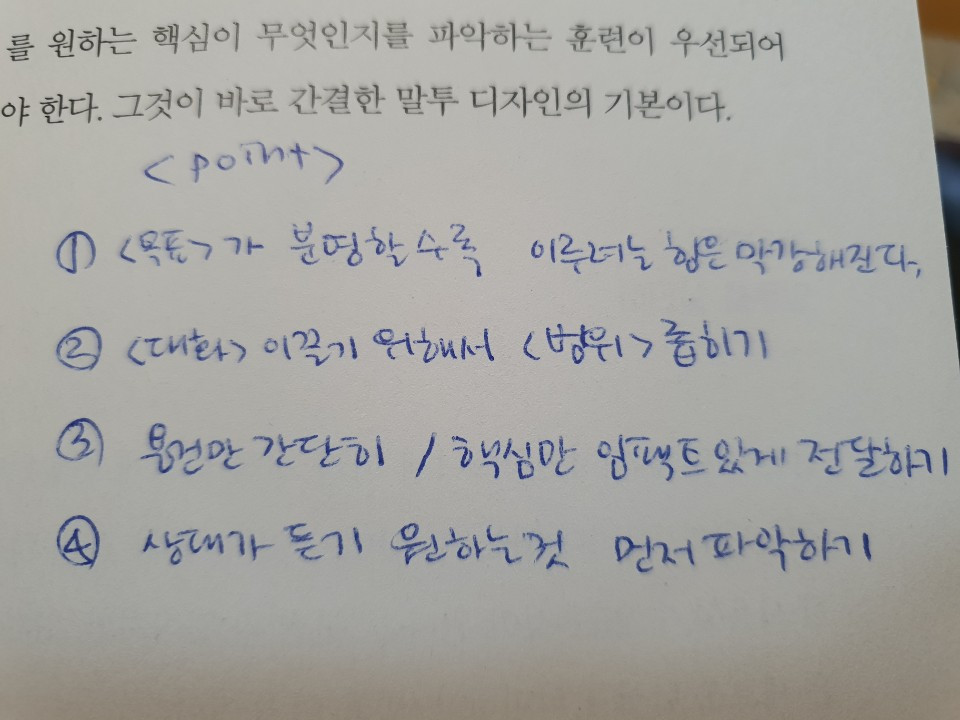 를 원하는 핵심이 무엇인지를 파악하는 훈련이 우선되어
야 한다. 그것이 바로 간결한 말투 디자인의 기본이다.
<point>
① <목표>가 분명할수록 이루려는 힘은 막강해진다.
② <대화> 이끌기 위해서 <범위> 좁히기
③ 용건만 간단히 / 핵심만 임팩트있게 전달하기
④ 상대가 듣기 원하는것 먼저 파악하기